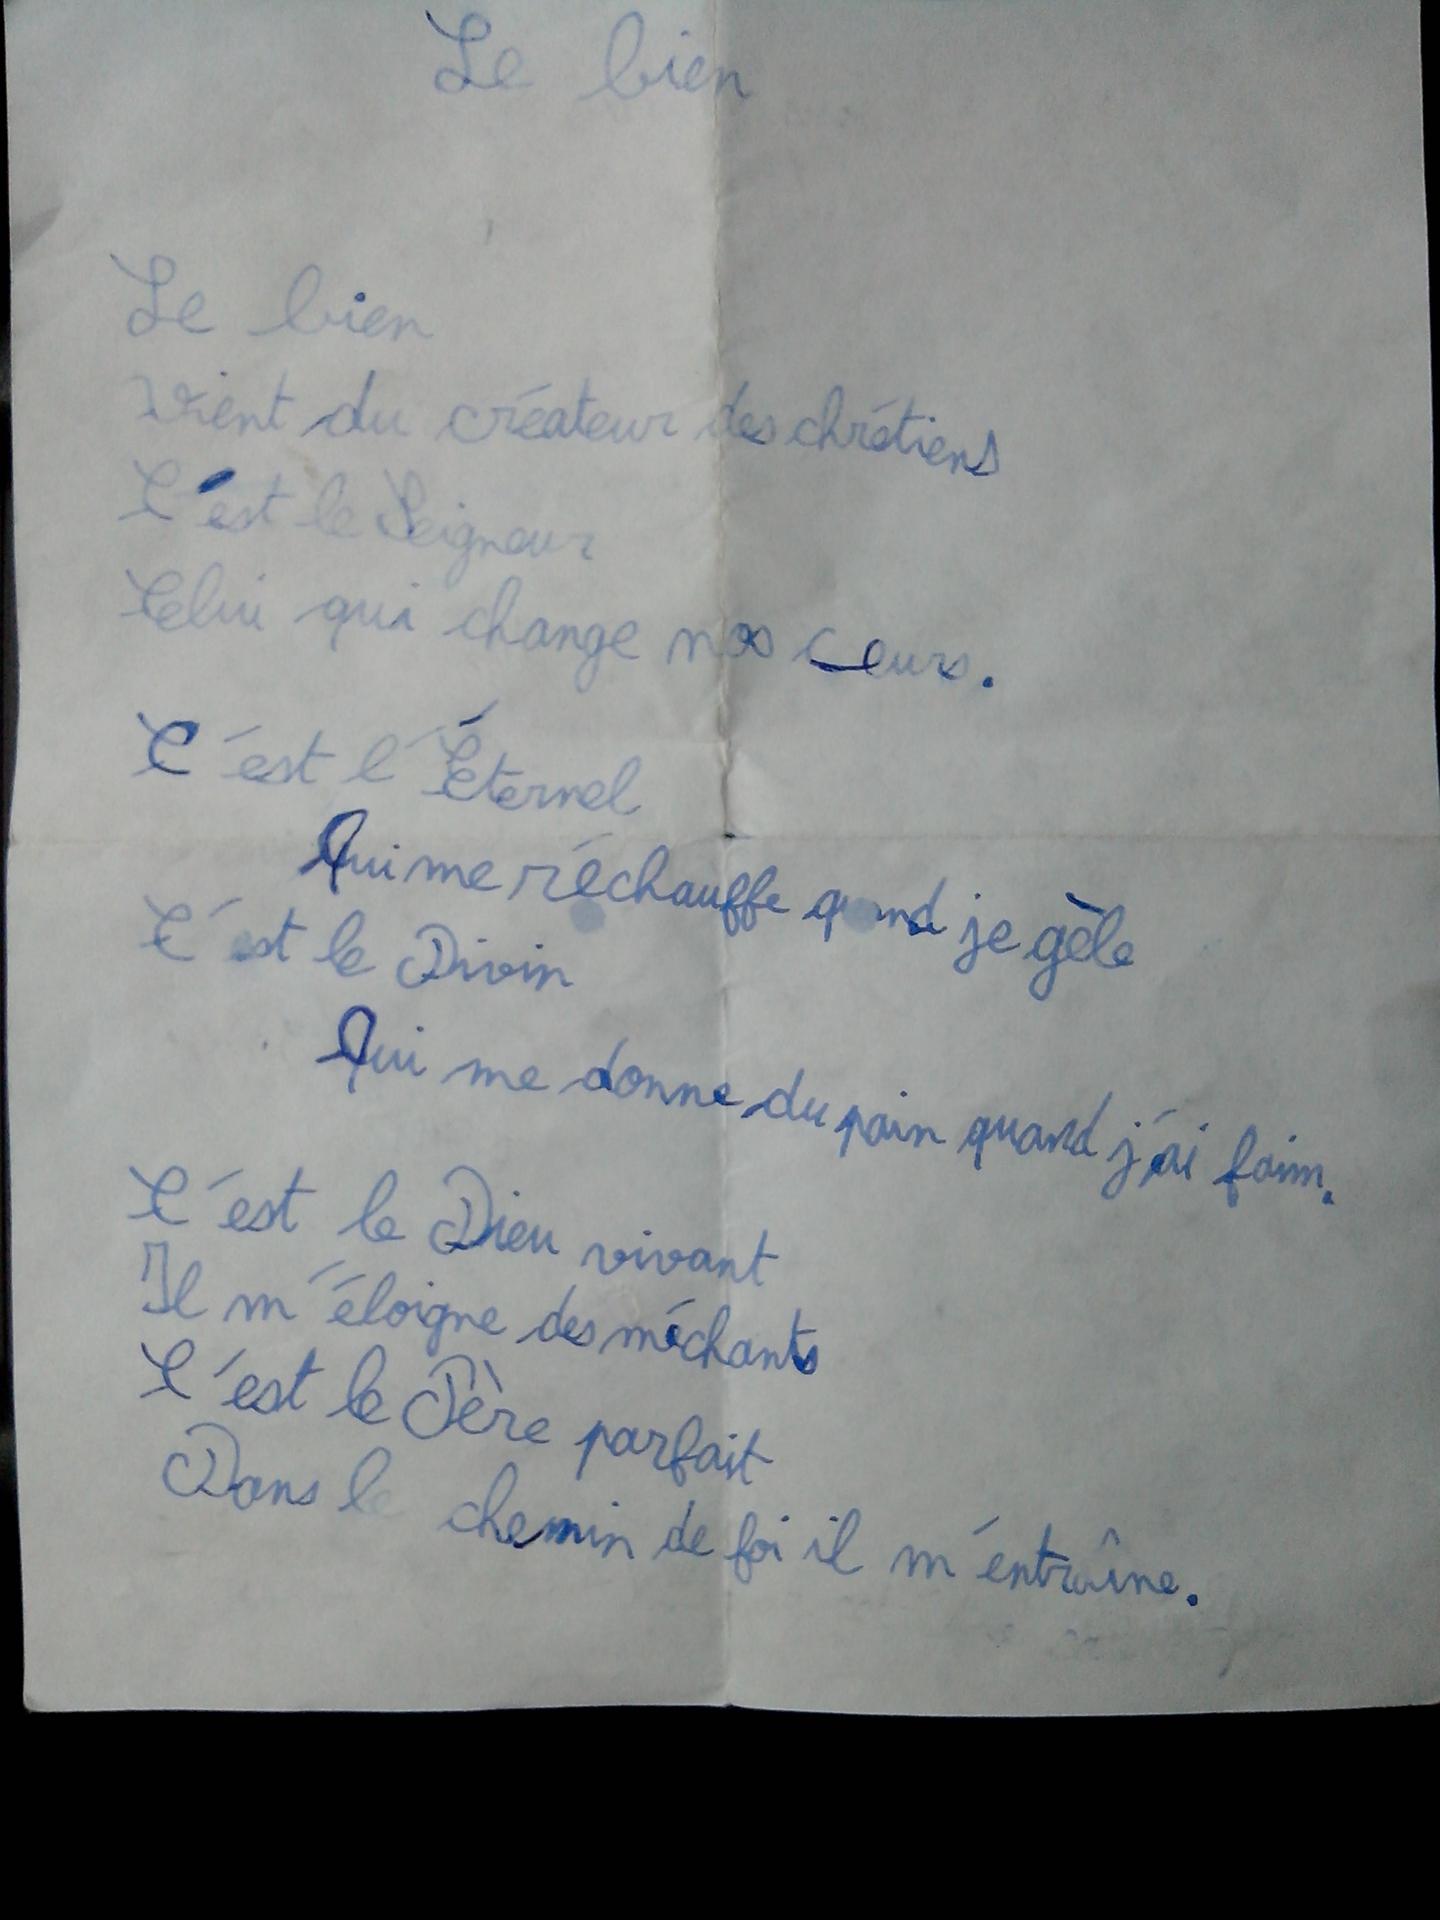 Le bien
Le bien
Vient du créateur des chrétiens
C'est le Seigneur
Celui qui change nos cœurs.
C'est l'Éternel
Qui me réchauffe quand je gèle
C'est le Divin
Qui me donne du pain quand j'ai faim.
C'est le Dieu vivant
Il m'éloigne des méchants
C'est le Père parfait
Dans le chemin de foi il m'entraîne.